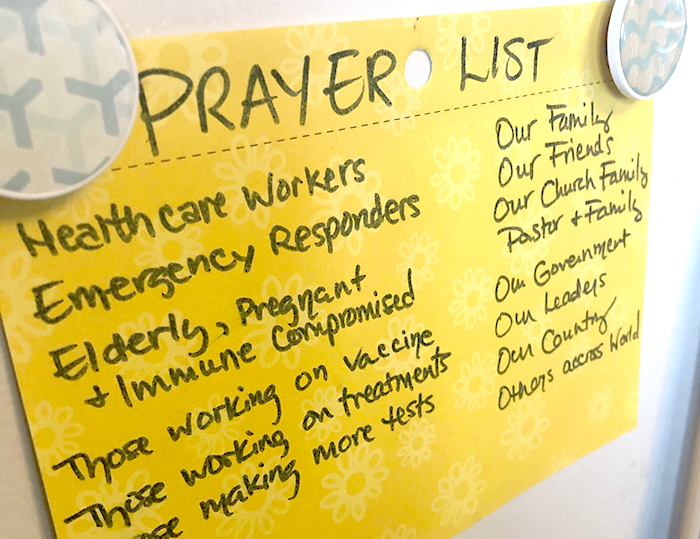 PRAYER LIST
Healthcare Workers
Emergency Responders
Elderly, Pregnant
+ Immune Compromised
Those working on vaccine
Those working on treatments
making more tests
Our Family
Our Friends
Our Church Family
Pastor + Family
Our Government
Our Leaders
Our Country
Others accross World